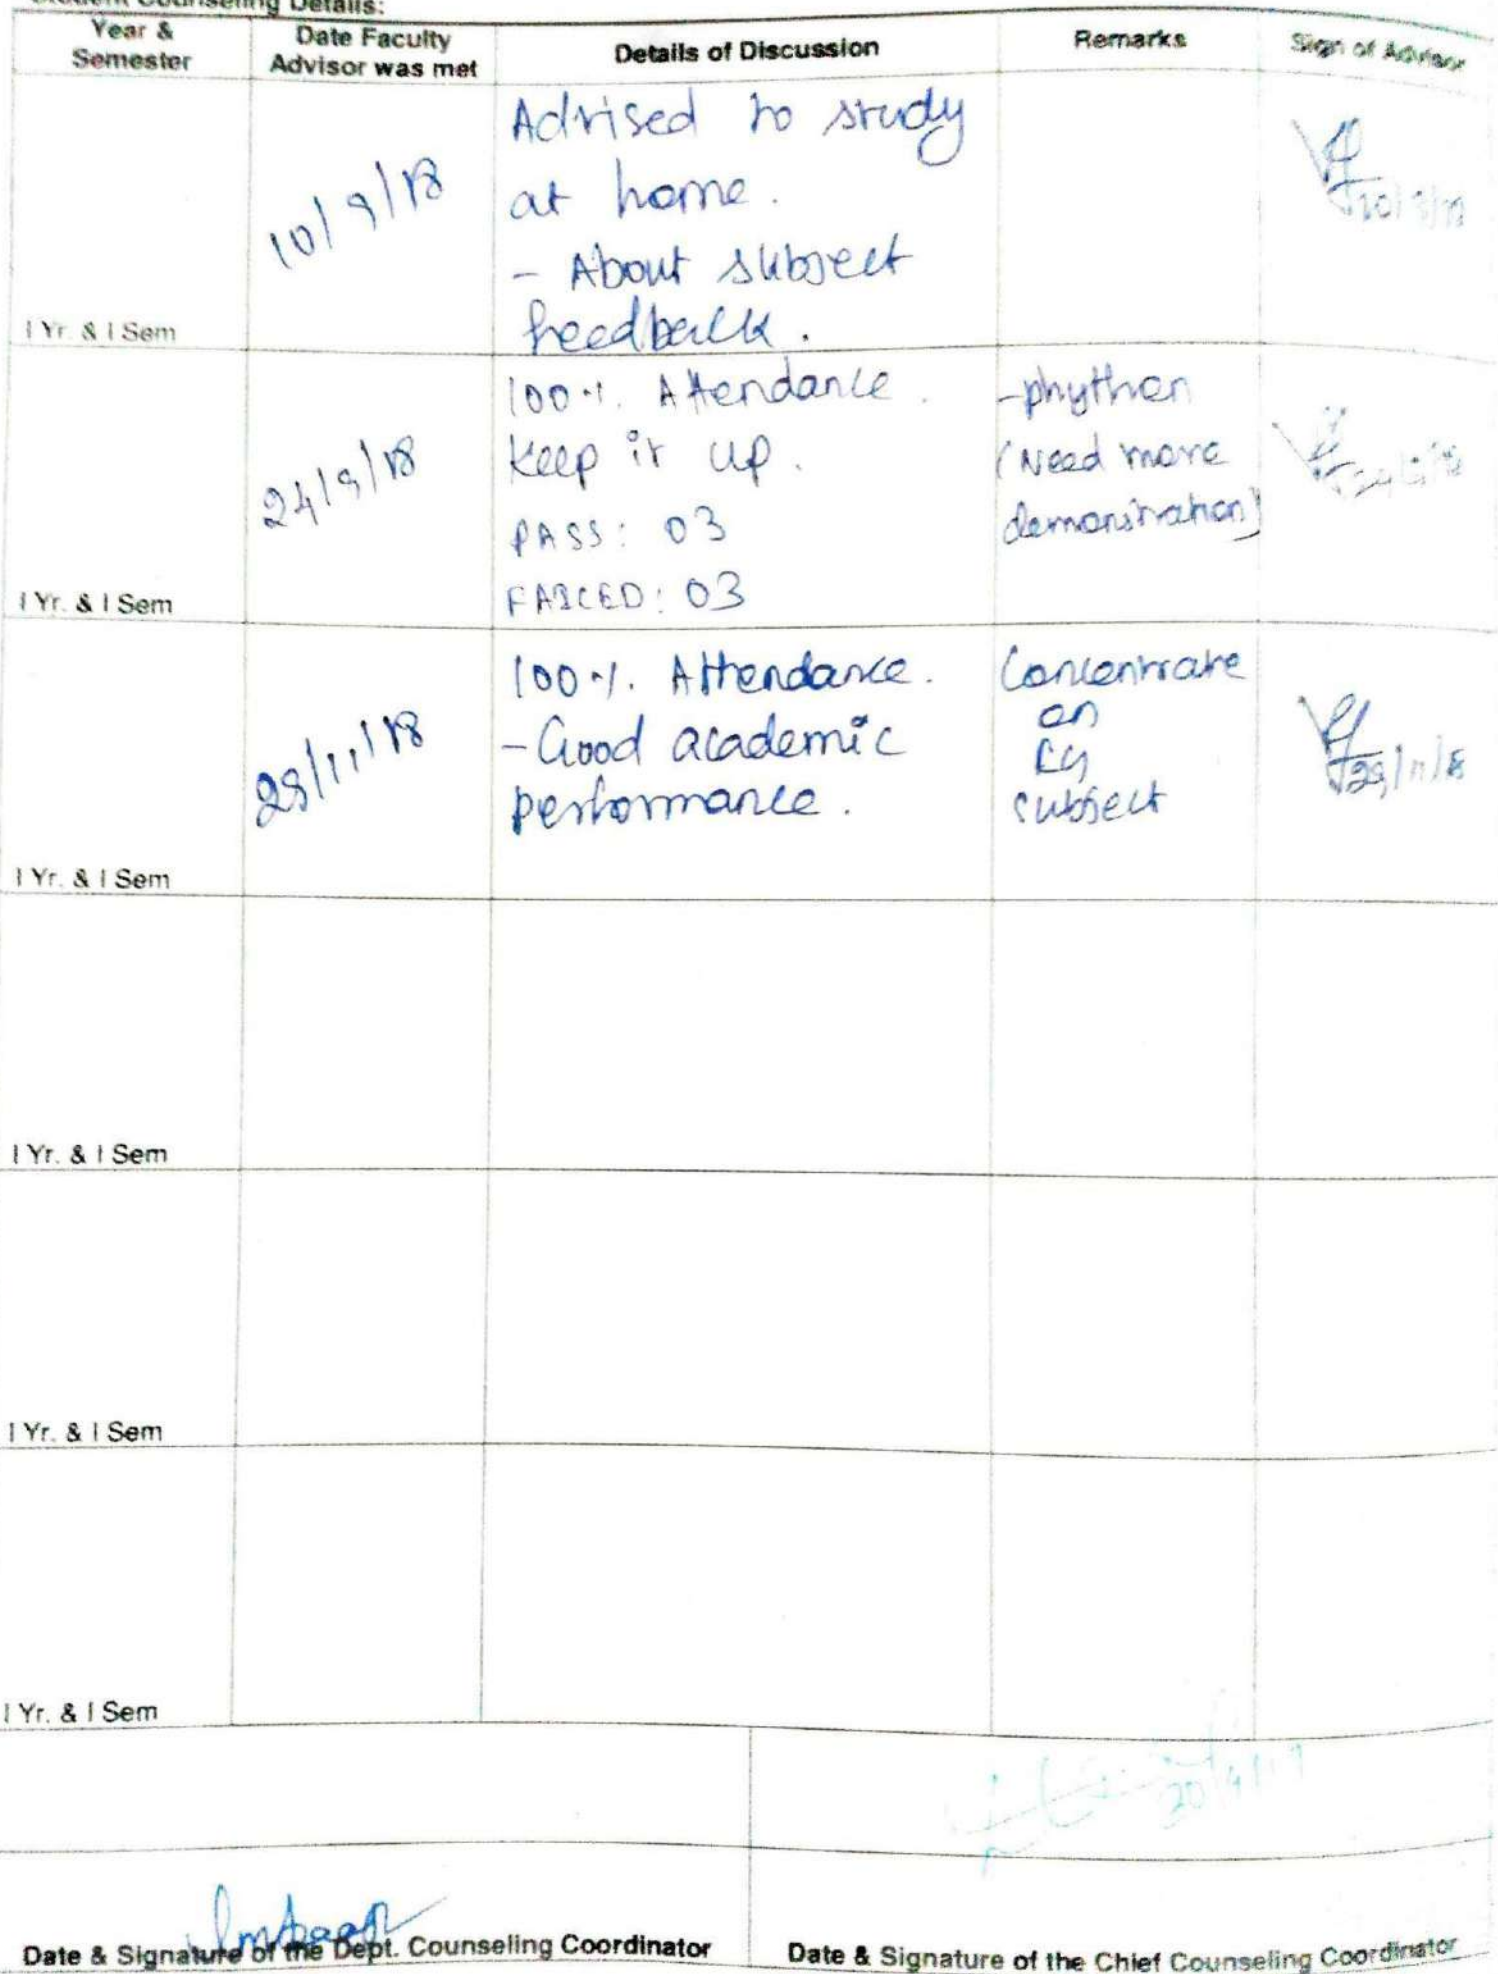 Student Counseling Details:
Year & Semester | Date Faculty Advisor was met | Details of Discussion | Remarks | Sign of Advisor
10/9/18
Advised to study
at home.
- About subject
feedback.
10/9/18
I Yr. & I Sem
24/9/18
100 %. Attendance.
Keep it up.
PASS: 03
FAILED: 03
-phython
(Need more
demonstration)
24/9/18
I Yr. & I Sem
29/11/18
100 %. Attendance.
- Good academic
performance.
Concentrate
on
subject
29/11/18
I Yr. & I Sem
I Yr. & I Sem
I Yr. & I Sem
I Yr. & I Sem
Date & Signature of the Dept. Counseling Coordinator
Date & Signature of the Chief Counseling Coordinator